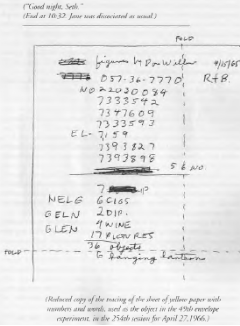 ("Good night, Seth."
(End at 10:32. Jane was dissociated as usual.)
FOLD
figures by Don Wilbur 9/15/65
057-36-7770 R+B.
NO 22020084
7333542
7347609
7333593
EL- 7159
7393827
7393898
5 6 NO.
7 IP
NELG 6 CIGS
GELN 2 DIP.
GLEN 9 WINE
17 PICTURES
FOLD 36 objects
6 hanging lanterns
(Reduced copy of the tracing of the sheet of yellow paper with
numbers and words, used as the object in the 49th envelope
experiment, in the 254th session for April 27, 1966.)